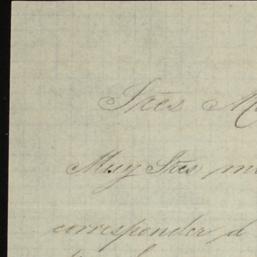 Sres M
Muy Sres mi
corresponder a